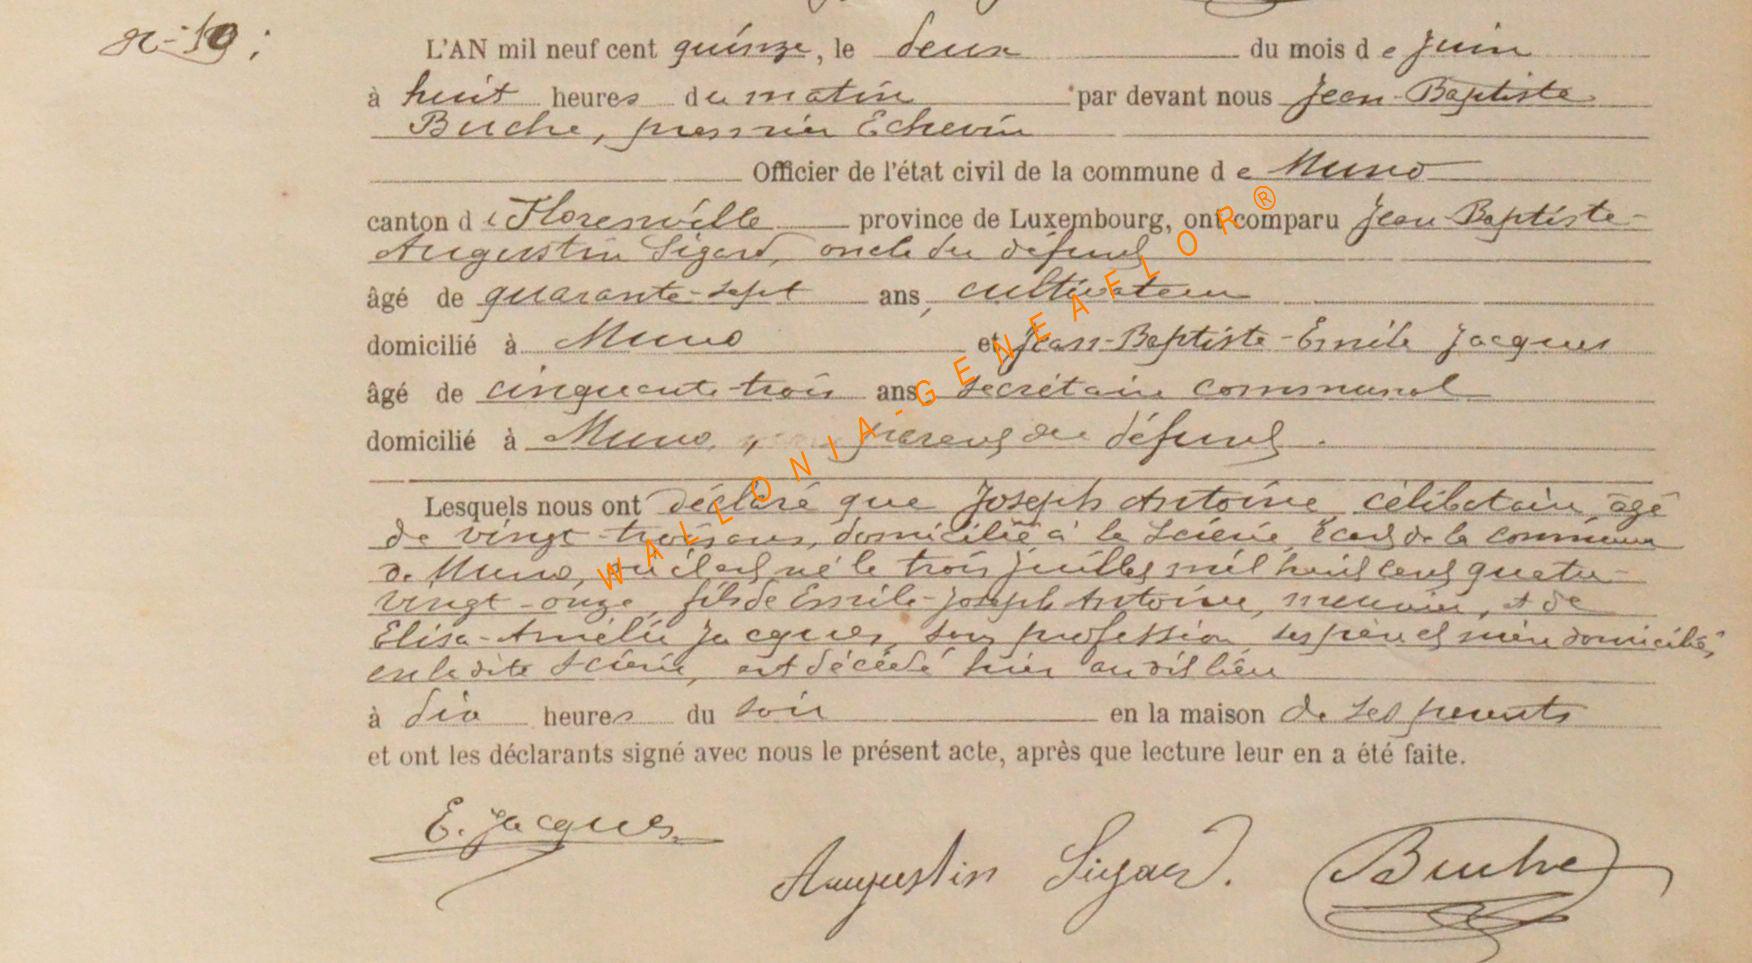 n° 10 ;
L'AN mil neuf cent quinze, le deux du mois de Juin
à huit heures du matin par devant nous Jean-Baptiste
Buche, premier Echevin
Officier de l'état civil de la commune de Muno
canton de Florenville province de Luxembourg, ont comparu Jean-Baptiste-
Augustin Sigard, oncle du défunt
âgé de quarante-sept ans, cultivateur
domicilié à Muno et Jean-Baptiste-Emile Jacques
âgé de cinquante-trois ans secrétaire communal
domicilié à Muno, parent du défunt.
Lesquels nous ont déclaré que Joseph Antoine, célibataire, âgé
de vingt-trois ans, domicilié à la Scierie, Ecart de la commune
de Muno, où il est né le trois juillet mil huit cent quatre-
vingt-onze, fils de Emile-Joseph Antoine, menuisier, et de
Elisa-Amélie Jacques, sans profession, ses père et mère domiciliés
en la dite Scierie, est décédé hier au dit lieu
à dix heures du soir en la maison de ses parents
et ont les déclarants signé avec nous le présent acte, après que lecture leur en a été faite.
E. Jacques
Augustin Sigard.
Buche
WALLONIA-GENEAFLOR®